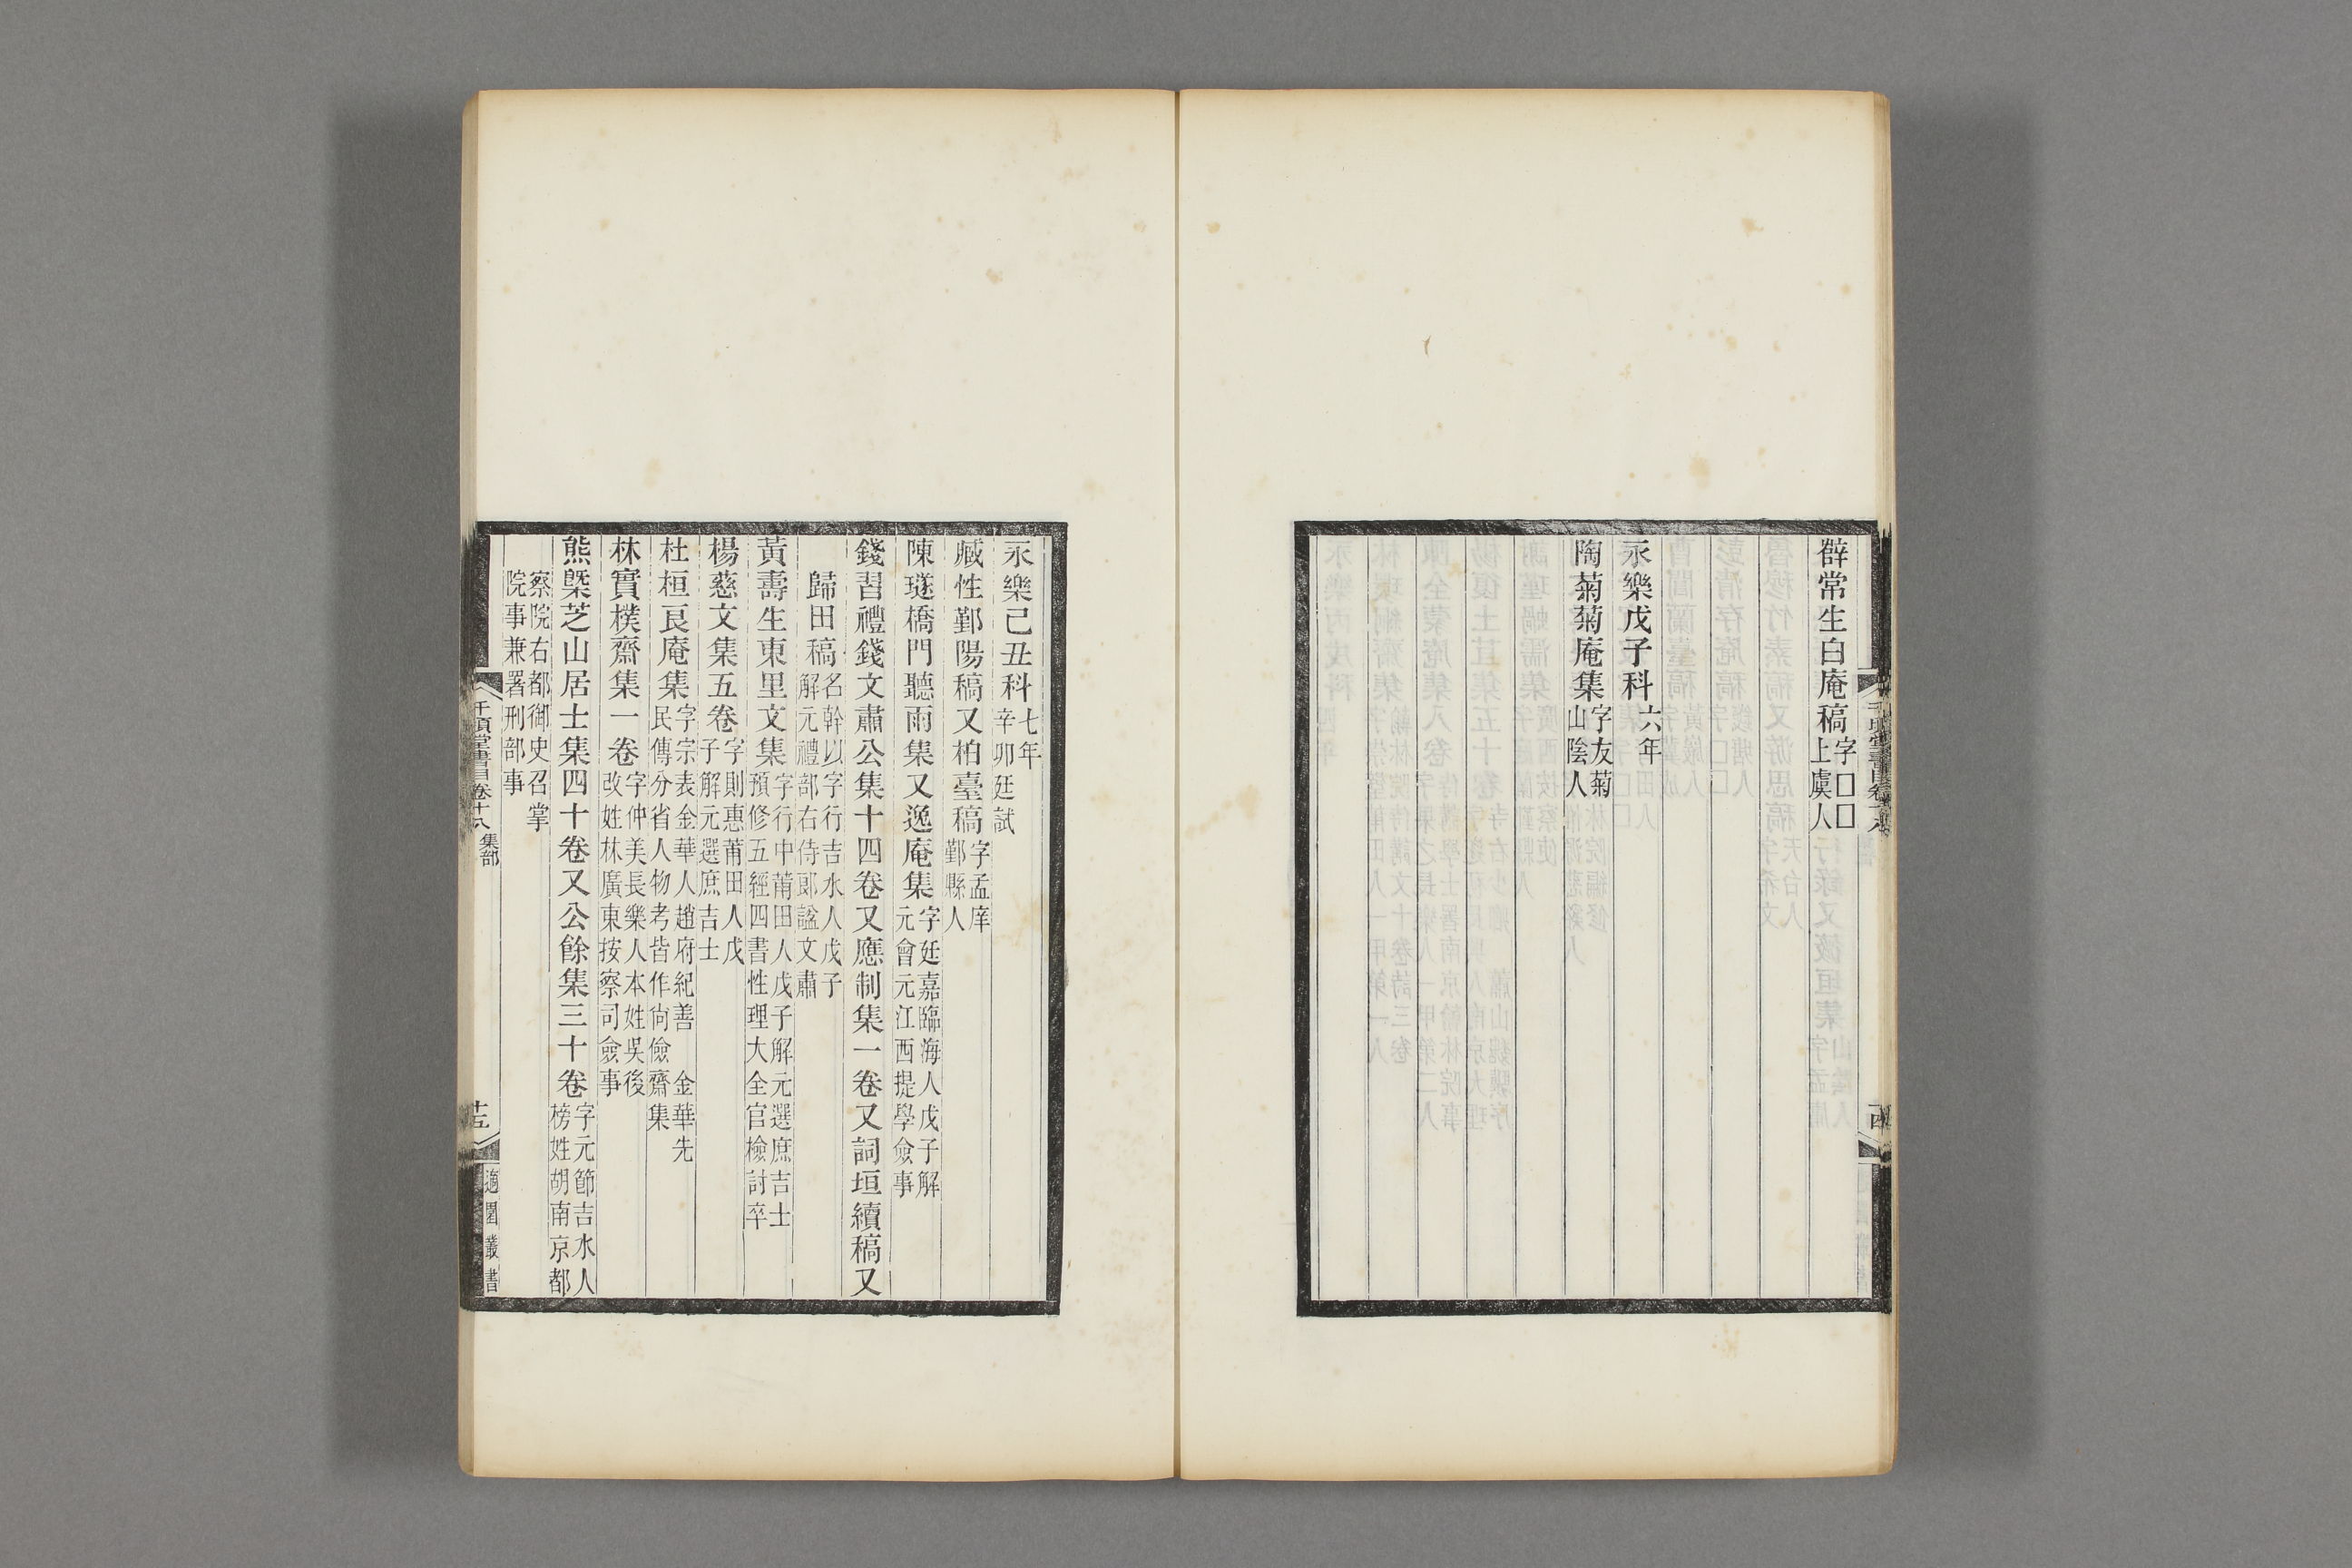 薜常生白庵稿字□□上虞人
永樂戊子科六年
陶菊菊庵集字友菊山陰人
永樂己丑科七年辛卯廷試
臧性鄞陽稿又柏臺稿字孟庠鄞縣人
陳璲橋門聽雨集又逸庵集字廷嘉臨海人戊子解元會元江西提學僉事
錢習禮錢文肅公集十四卷又應制集一卷又詞垣續稿又
歸田稿名幹以字行吉水人戊子解元禮部右侍郎諡文肅
黃壽生東里文集字行中莆田人戊子解元選庶吉士預修五經四書性理大全官檢討卒
楊慈文集五卷字則惠莆田人戊子解元選庶吉士
杜桓艮庵集字宗表金華人趙府紀善 金華先民傳分省人物考皆作尚儉齋集
林實樸齋集一卷字仲美長樂人本姓吳後改姓林廣東按察司僉事
熊槩芝山居士集四十卷又公餘集三十卷字元節吉水人榜姓胡南京都
察院右都御史召掌院事兼署刑部事
千頃堂書目卷十八 集部
十五
適園叢書